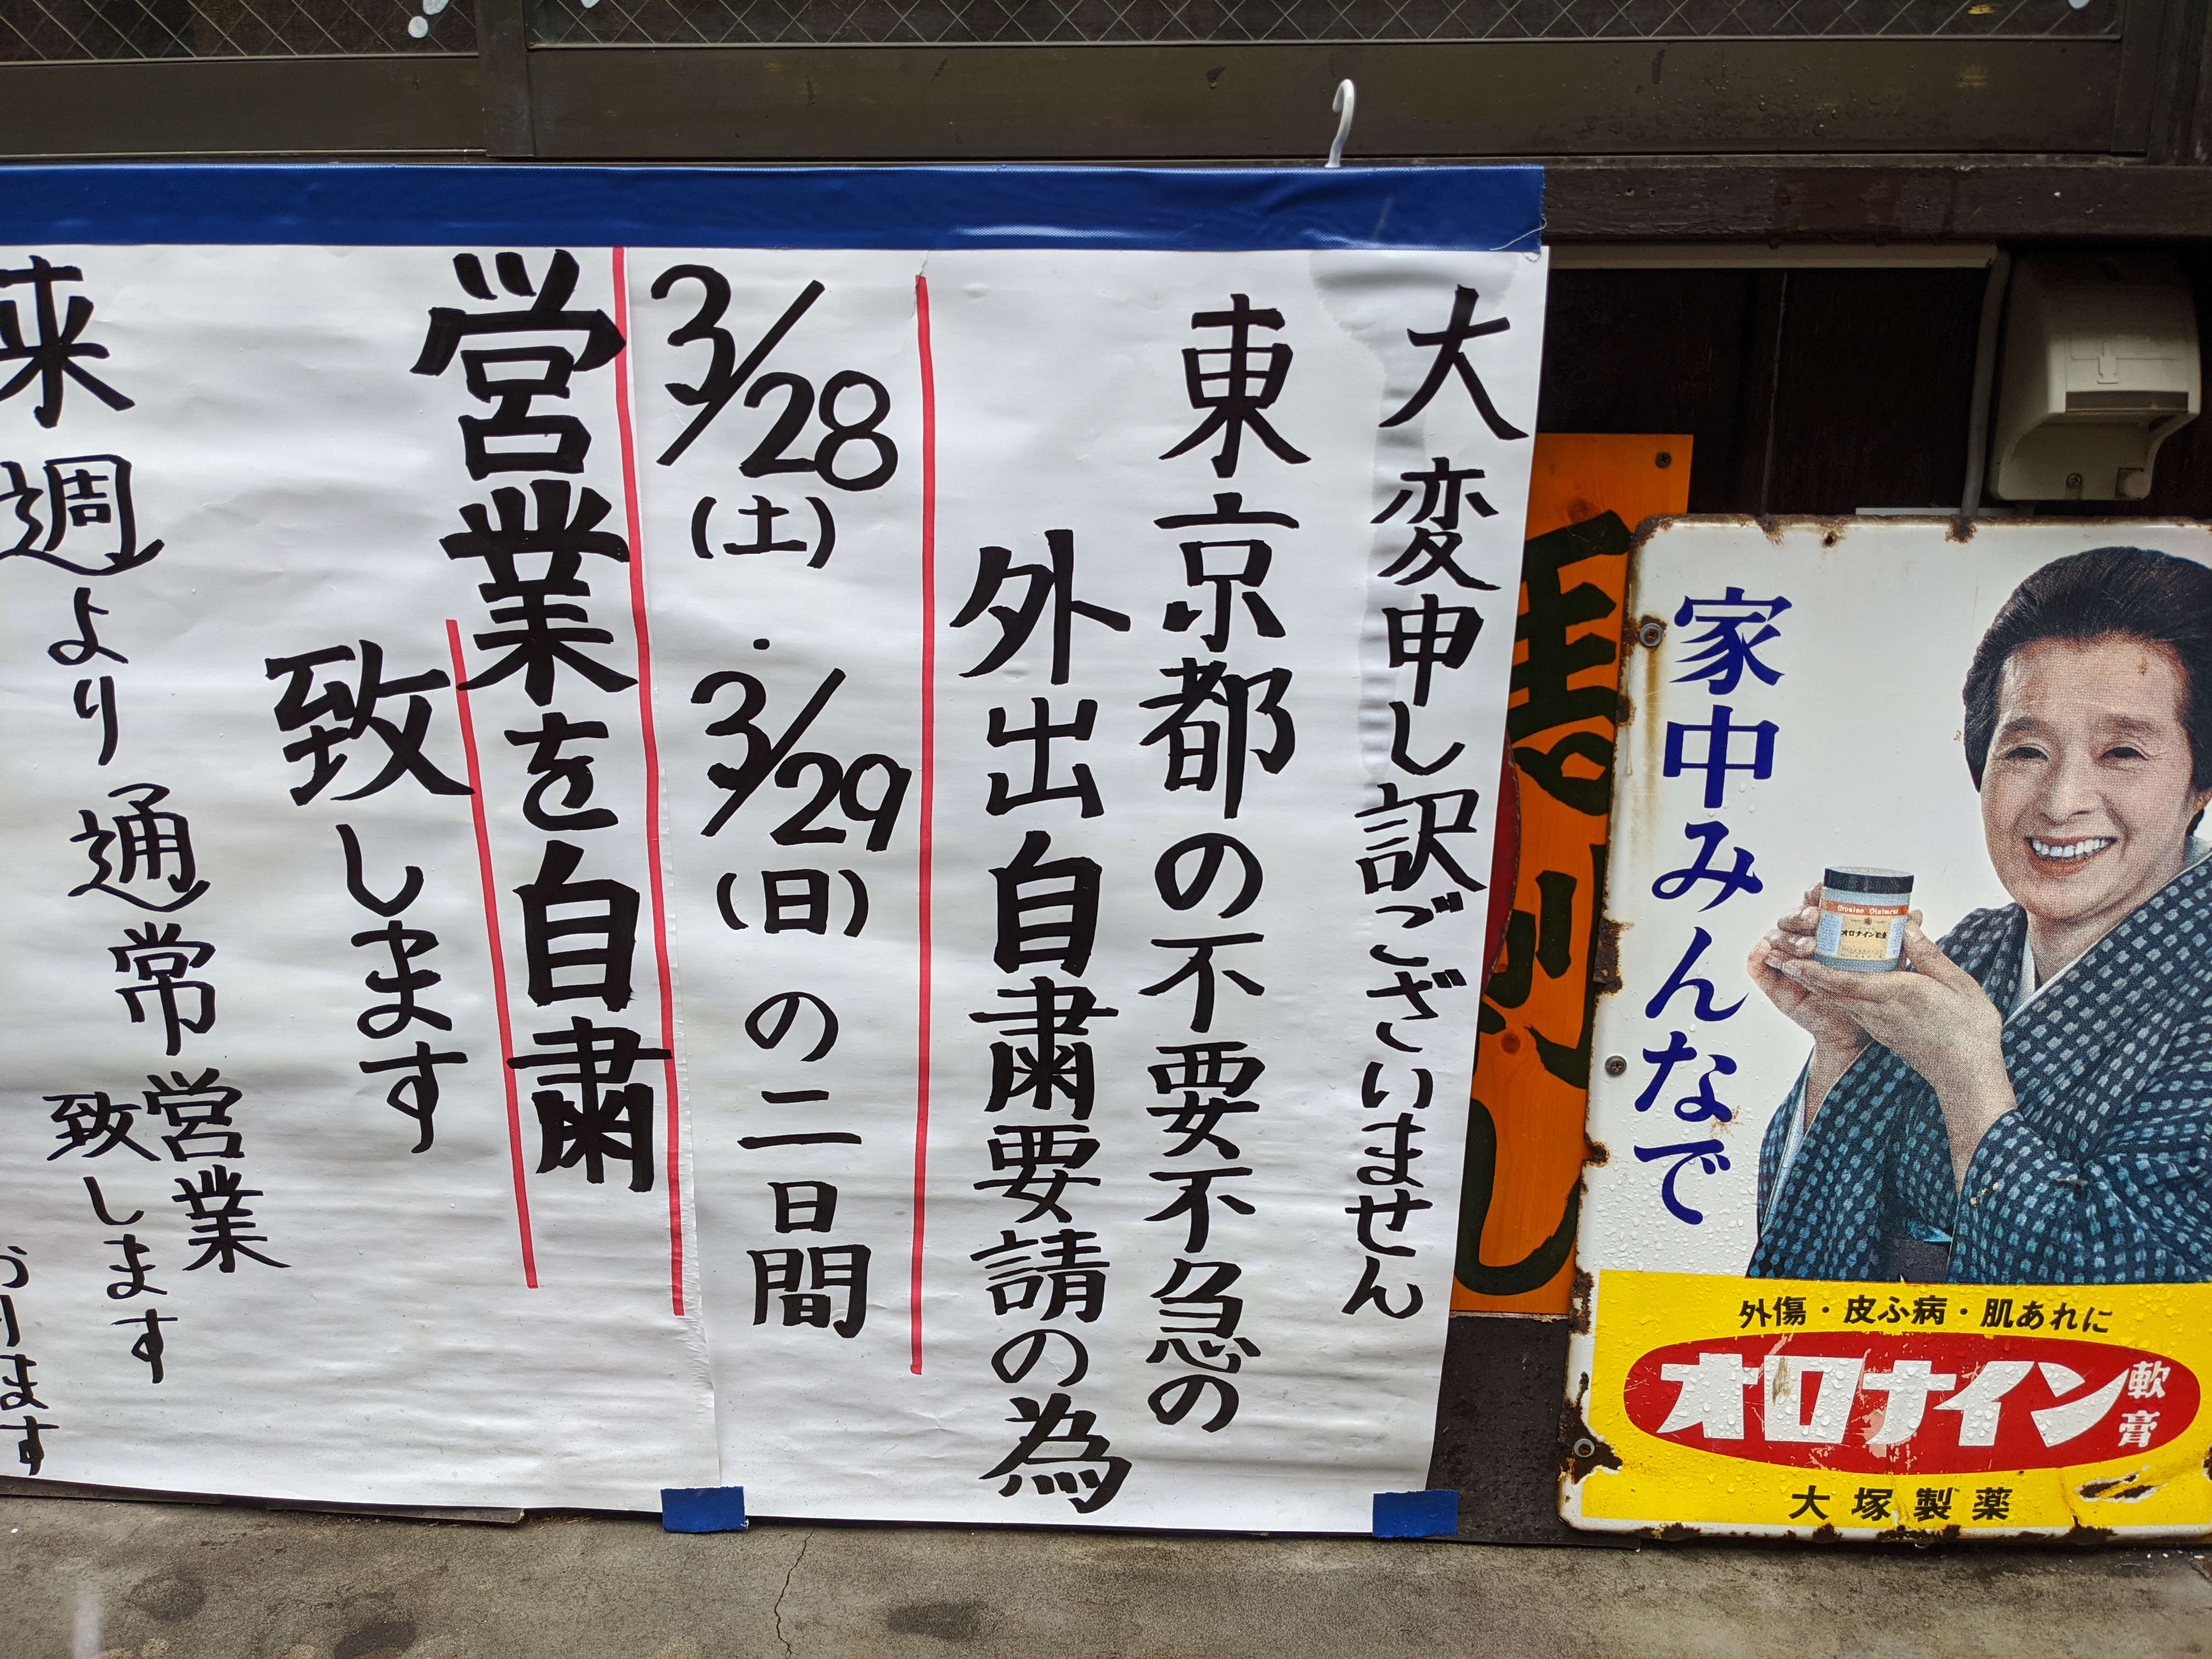 大変申し訳ございません
東京都の不要不急の
外出自粛要請の為
3/28(土)・3/29(日)の二日間
営業を自粛
致します
来週より通常営業
致します
おります
馬刺し
家中みんなで
Oronine Ointment
オロナイン軟膏
外傷・皮ふ病・肌あれに
オロナイン軟膏
大塚製薬